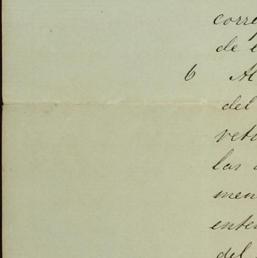 corre
de
6 Al
del
reti
las
men
ente
del